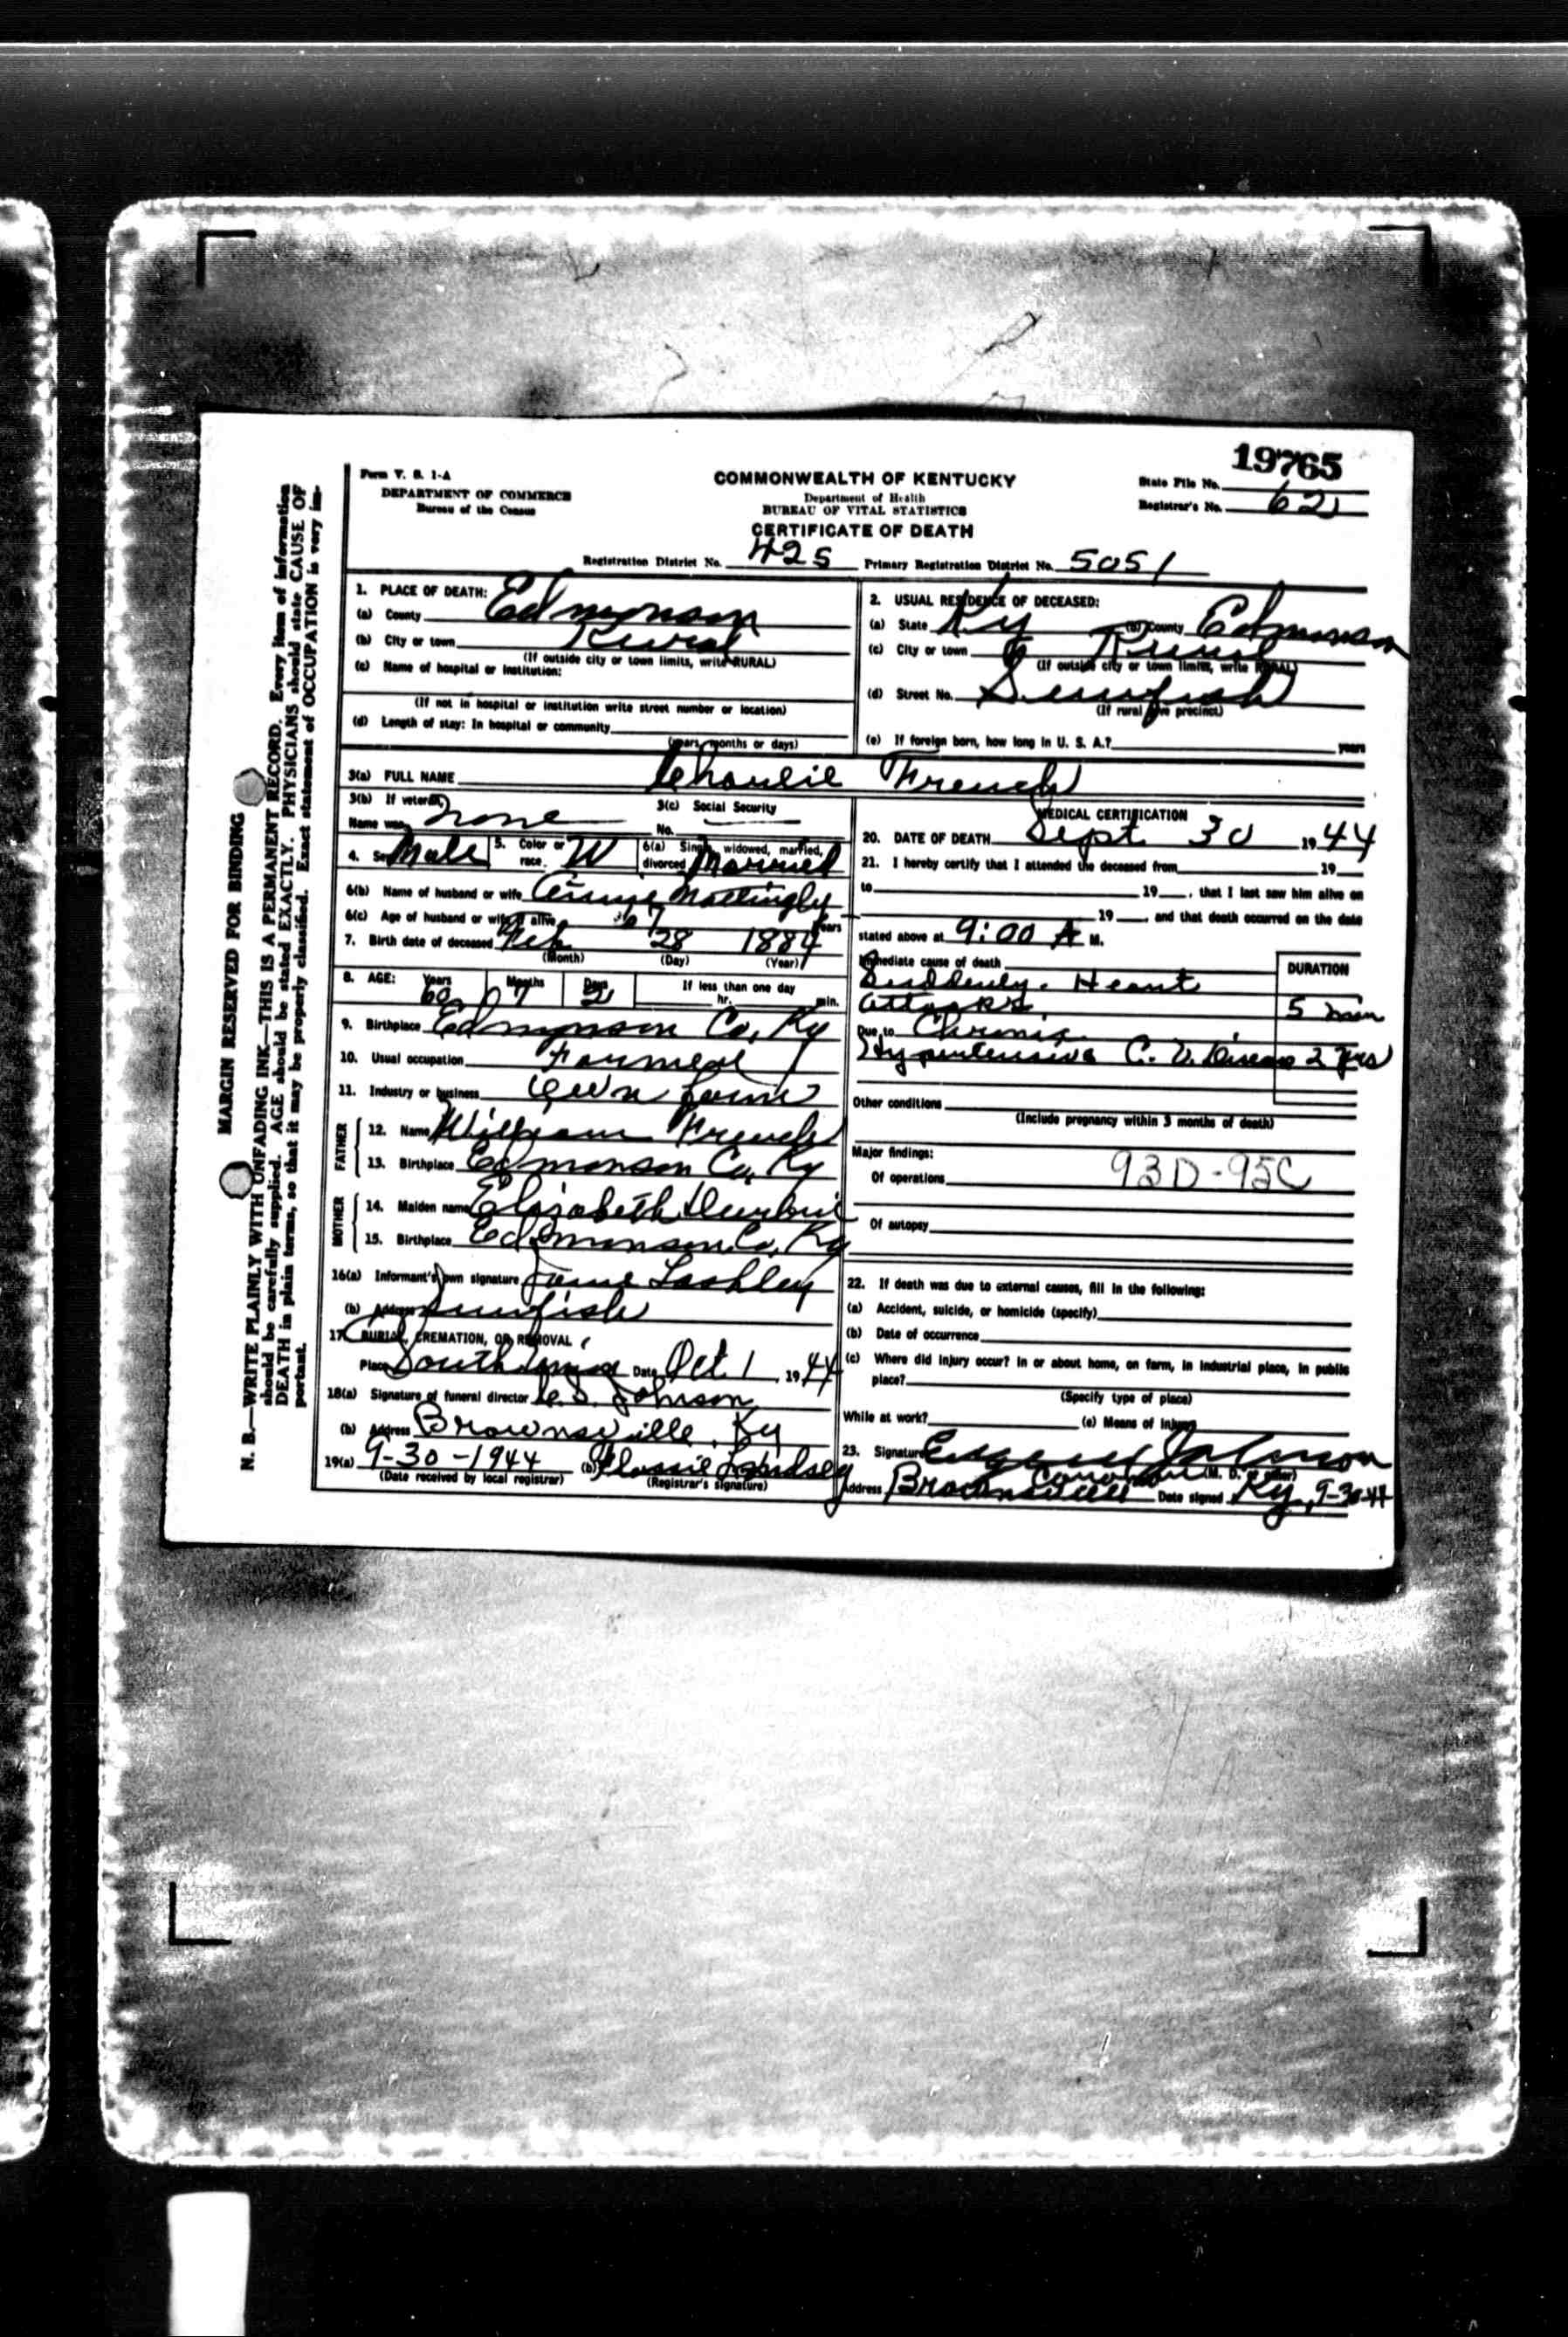 19765
Form V. S. 1-A
DEPARTMENT OF COMMERCE
Bureau of the Census
COMMONWEALTH OF KENTUCKY
Department of Health
BUREAU OF VITAL STATISTICS
CERTIFICATE OF DEATH
State File No.
Registrar's No. 62
Registration District No. 425 Primary Registration District No. 5051
MARGIN RESERVED FOR BINDING
N. B.—WRITE PLAINLY WITH UNFADING INK—THIS IS A PERMANENT RECORD. Every item of information
should be carefully supplied. AGE should be stated EXACTLY. PHYSICIANS should state CAUSE OF
DEATH in plain terms, so that it may be properly classified. Exact statement of OCCUPATION is very im-
portant.
1. PLACE OF DEATH:
(a) County Edmonson
(b) City or town Rural
(If outside city or town limits, write RURAL)
(c) Name of hospital or institution:
(If not in hospital or institution write street number or location)
(d) Length of stay: In hospital or community
(years, months or days)
2. USUAL RESIDENCE OF DECEASED:
(a) State Ky (b) County Edmonson
(c) City or town Rural
(If outside city or town limits, write RURAL)
(d) Street No. Sunfish
(If rural give precinct)
(e) If foreign born, how long in U. S. A.? years
3(a) FULL NAME Charlie French
3(b) If veteran, 3(c) Social Security
Name war none No.
4. Sex Male 5. Color or race W 6(a) Single, widowed, married, divorced Married
6(b) Name of husband or wife Annie Mattingly
6(c) Age of husband or wife if alive 67 Years
7. Birth date of deceased Feb 28 1884
(Month) (Day) (Year)
8. AGE: Years 60 Months 7 Days 2 If less than one day
hr. min.
9. Birthplace Edmonson Co, Ky
10. Usual occupation Farmer
11. Industry or business Own farm
FATHER
12. Name William French
13. Birthplace Edmonson Co, Ky
MOTHER
14. Maiden name Elizabeth Durbin
15. Birthplace Edmonson Co, Ky
16(a) Informant's own signature Lashley
(b) Address Sunfish
17. BURIAL, CREMATION, OR REMOVAL
Place Date Oct. 1, 1944
18(a) Signature of funeral director Johnson
(b) Address Brownsville, Ky
19(a) 9-30-1944 (b) Lindsey
(Date received by local registrar) (Registrar's signature)
MEDICAL CERTIFICATION
20. DATE OF DEATH Sept 30 1944
21. I hereby certify that I attended the deceased from 19
to 19 , that I last saw him alive on
19 , and that death occurred on the date
stated above at 9:00 A M.
Immediate cause of death DURATION
Suddenly. Heart
attack 5 min
Due to Chronic
Hypertensive C. V. Disease 2 yrs
Other conditions
(Include pregnancy within 3 months of death)
Major findings:
Of operations 93D-95C
Of autopsy
22. If death was due to external causes, fill in the following:
(a) Accident, suicide, or homicide (specify)
(b) Date of occurrence
(c) Where did injury occur? In or about home, on farm, in industrial place, in public
place?
(Specify type of place)
While at work? (e) Means of Injury
23. Signature Eugene Johnson
Coroner (M. D. or other)
Address Brownsville Date signed Ky, 9-30-44